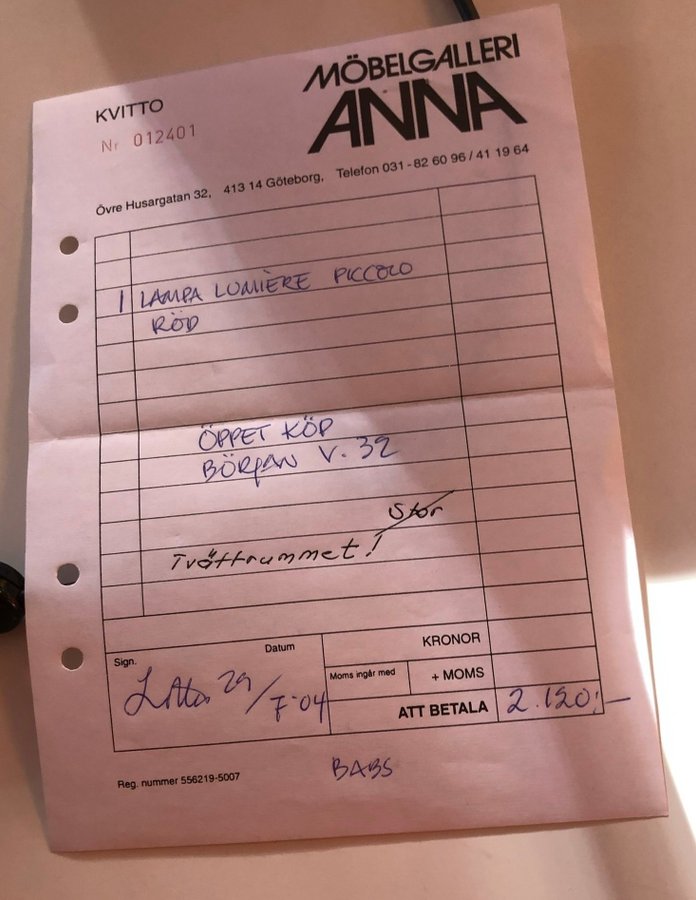 KVITTO
Nr 012401
MÖBELGALLERI
ANNA
Övre Husargatan 32, 413 14 Göteborg, Telefon 031 - 82 60 96 / 41 19 64
1 LAMPA LUMIÈRE PICCOLO
RÖD
ÖPPET KÖP
BÖRJAN V. 32
Stor
Tvättrummet!
Sign.
Datum
29/7-04
KRONOR
Moms ingår med
+ MOMS
ATT BETALA 2.120:-
Reg. nummer 556219-5007
BABS